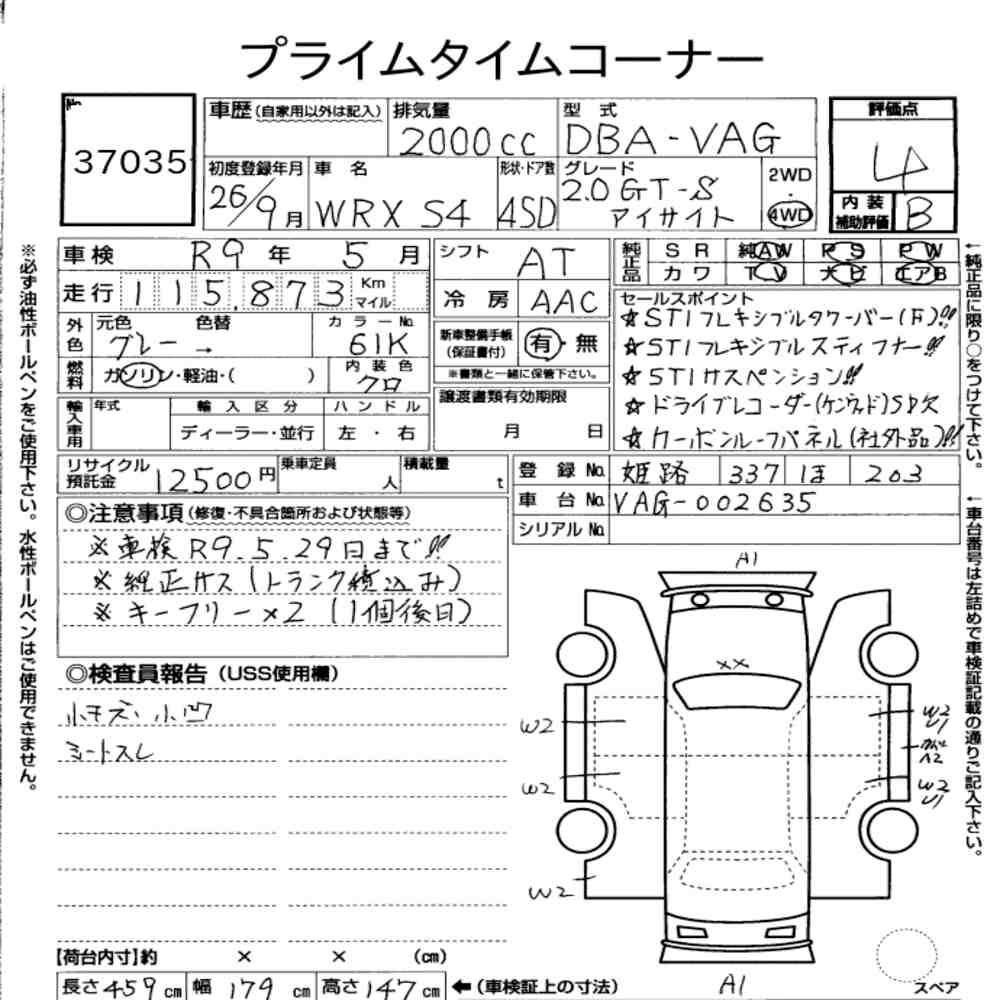 プライムタイムコーナー
No.
37035
車歴(自家用以外は記入)
排気量
2000cc
型 式
DBA-VAG
評価点
4
内装補助評価
B
初度登録年月
26/9月
車 名
WRX S4
形状・ドア数
4SD
グレード
2.0 GT-S
アイサイト
2WD
・
4WD
車検 R9年 5月
走行 115.873 Km マイル
シフト AT
冷 房 AAC
純正品
SR 純AW PS PW
カワ TV ナビ エアB
外色
元色 色替 カラーNo.
グレー → 61K
燃料
ガソリン・軽油・( )
内装色
クロ
新車整備手帳(保証書付)
有・無
※書類と一緒に保管下さい。
セールスポイント
☆STIフレキシブルタワーバー(F)!!
☆STIフレキシブルスティフナー!!
☆STIサスペンション!!
☆ドライブレコーダー(ケンウッド)SD欠
☆カーボンルーフパネル(社外品)!!
輸入車用
年式
輸入区分
ハンドル
ディーラー・並行
左・右
譲渡書類有効期限
月 日
リサイクル預託金 12500円
乗車定員 人
積載量 t
登録No. 姫路 337 ほ 203
車台No. VAG-002635
シリアルNo.
◎注意事項(修復・不具合箇所および状態等)
※車検R9.5.29日まで!!
※純正サス(トランク積込み)
※キーフリー×2(1個後日)
◎検査員報告(USS使用欄)
小キズ・小凹
シートスレ
A1
××
W2
W2
W2
W2
U1
A2
W2
U1
A1
スペア
【荷台内寸】約 × × (cm)
長さ459cm 幅179cm 高さ147cm
←(車検証上の寸法)
※必ず油性ボールペンをご使用下さい。水性ボールペンはご使用できません。
←純正品に限り○をつけて下さい。
←車台番号は左詰めで車検証記載の通りご記入下さい。